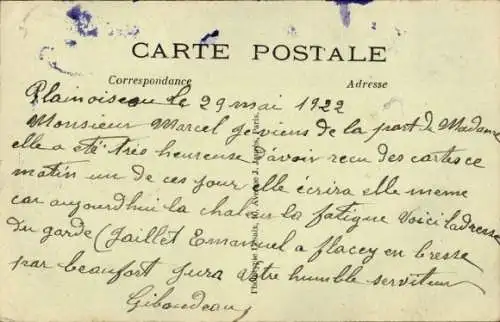 CARTE POSTALE
Correspondance
Adresse
Plainoiseau le 29 mai 1922
Monsieur Marcel je viens de la part de Madame
elle a été très heureuse d'avoir recu des cartes ce
matin un de ces jour elle écrira elle meme
car aujourdhui la chaleur la fatigue voici ladresse
du garde (Jaillet Emanuel a flacey en bresse
par beaufort jura votre humble serviteur
Giboudeau
Phototypie
Avenue J. Jaurès, Paris.